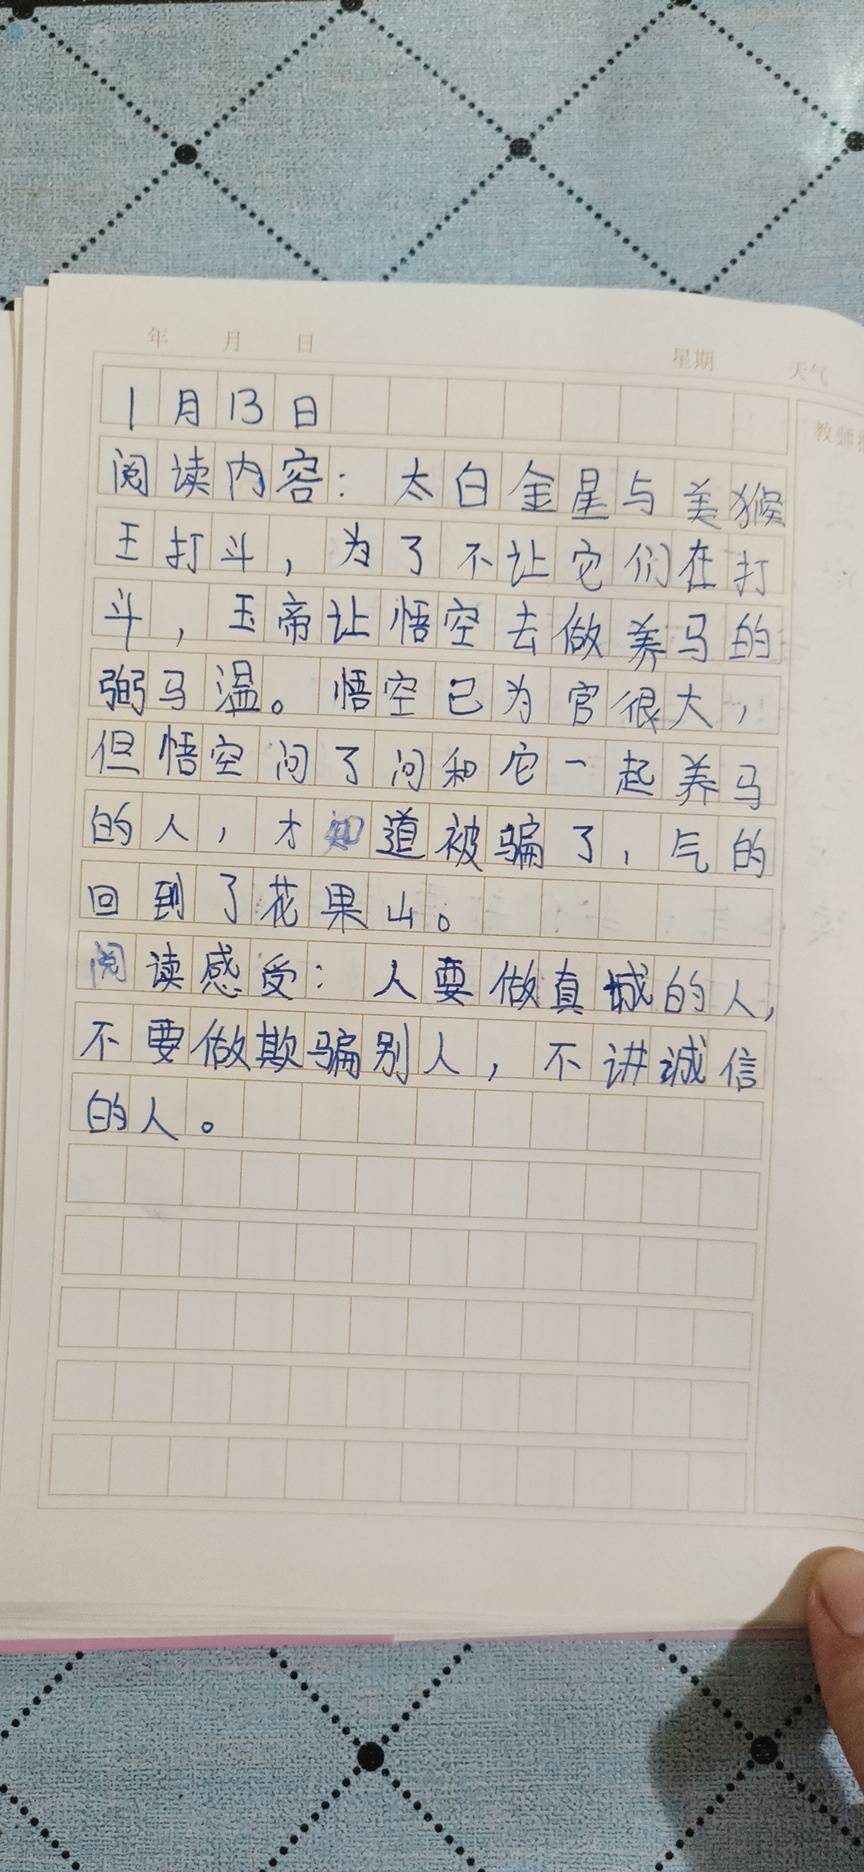 年 月 日 星期 天气
教师
1月13日
阅读内容：太白金星与美猴
王打斗，为了不让它们在打
斗，玉帝让悟空去做养马的
弼马温。悟空已为官很大，
但悟空问了问和它一起养马
的人，才知道被骗了，气的
回到了花果山。
阅读感受：人要做真城的人，
不要做欺骗别人，不讲诚信
的人。